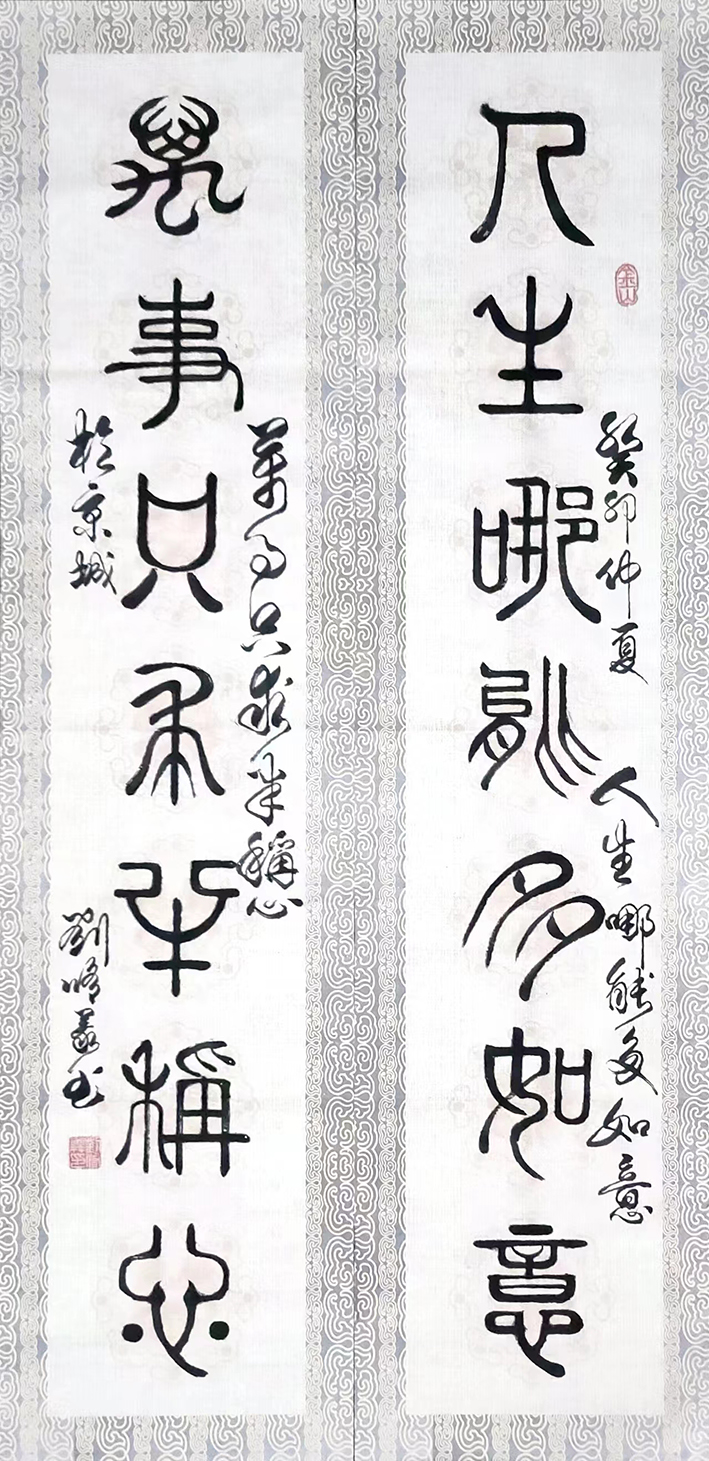 金山
癸卯仲夏 人生哪能多如意
人生哪能多如意
萬事只求半稱心
萬事只求半稱心
於京城 劉 书